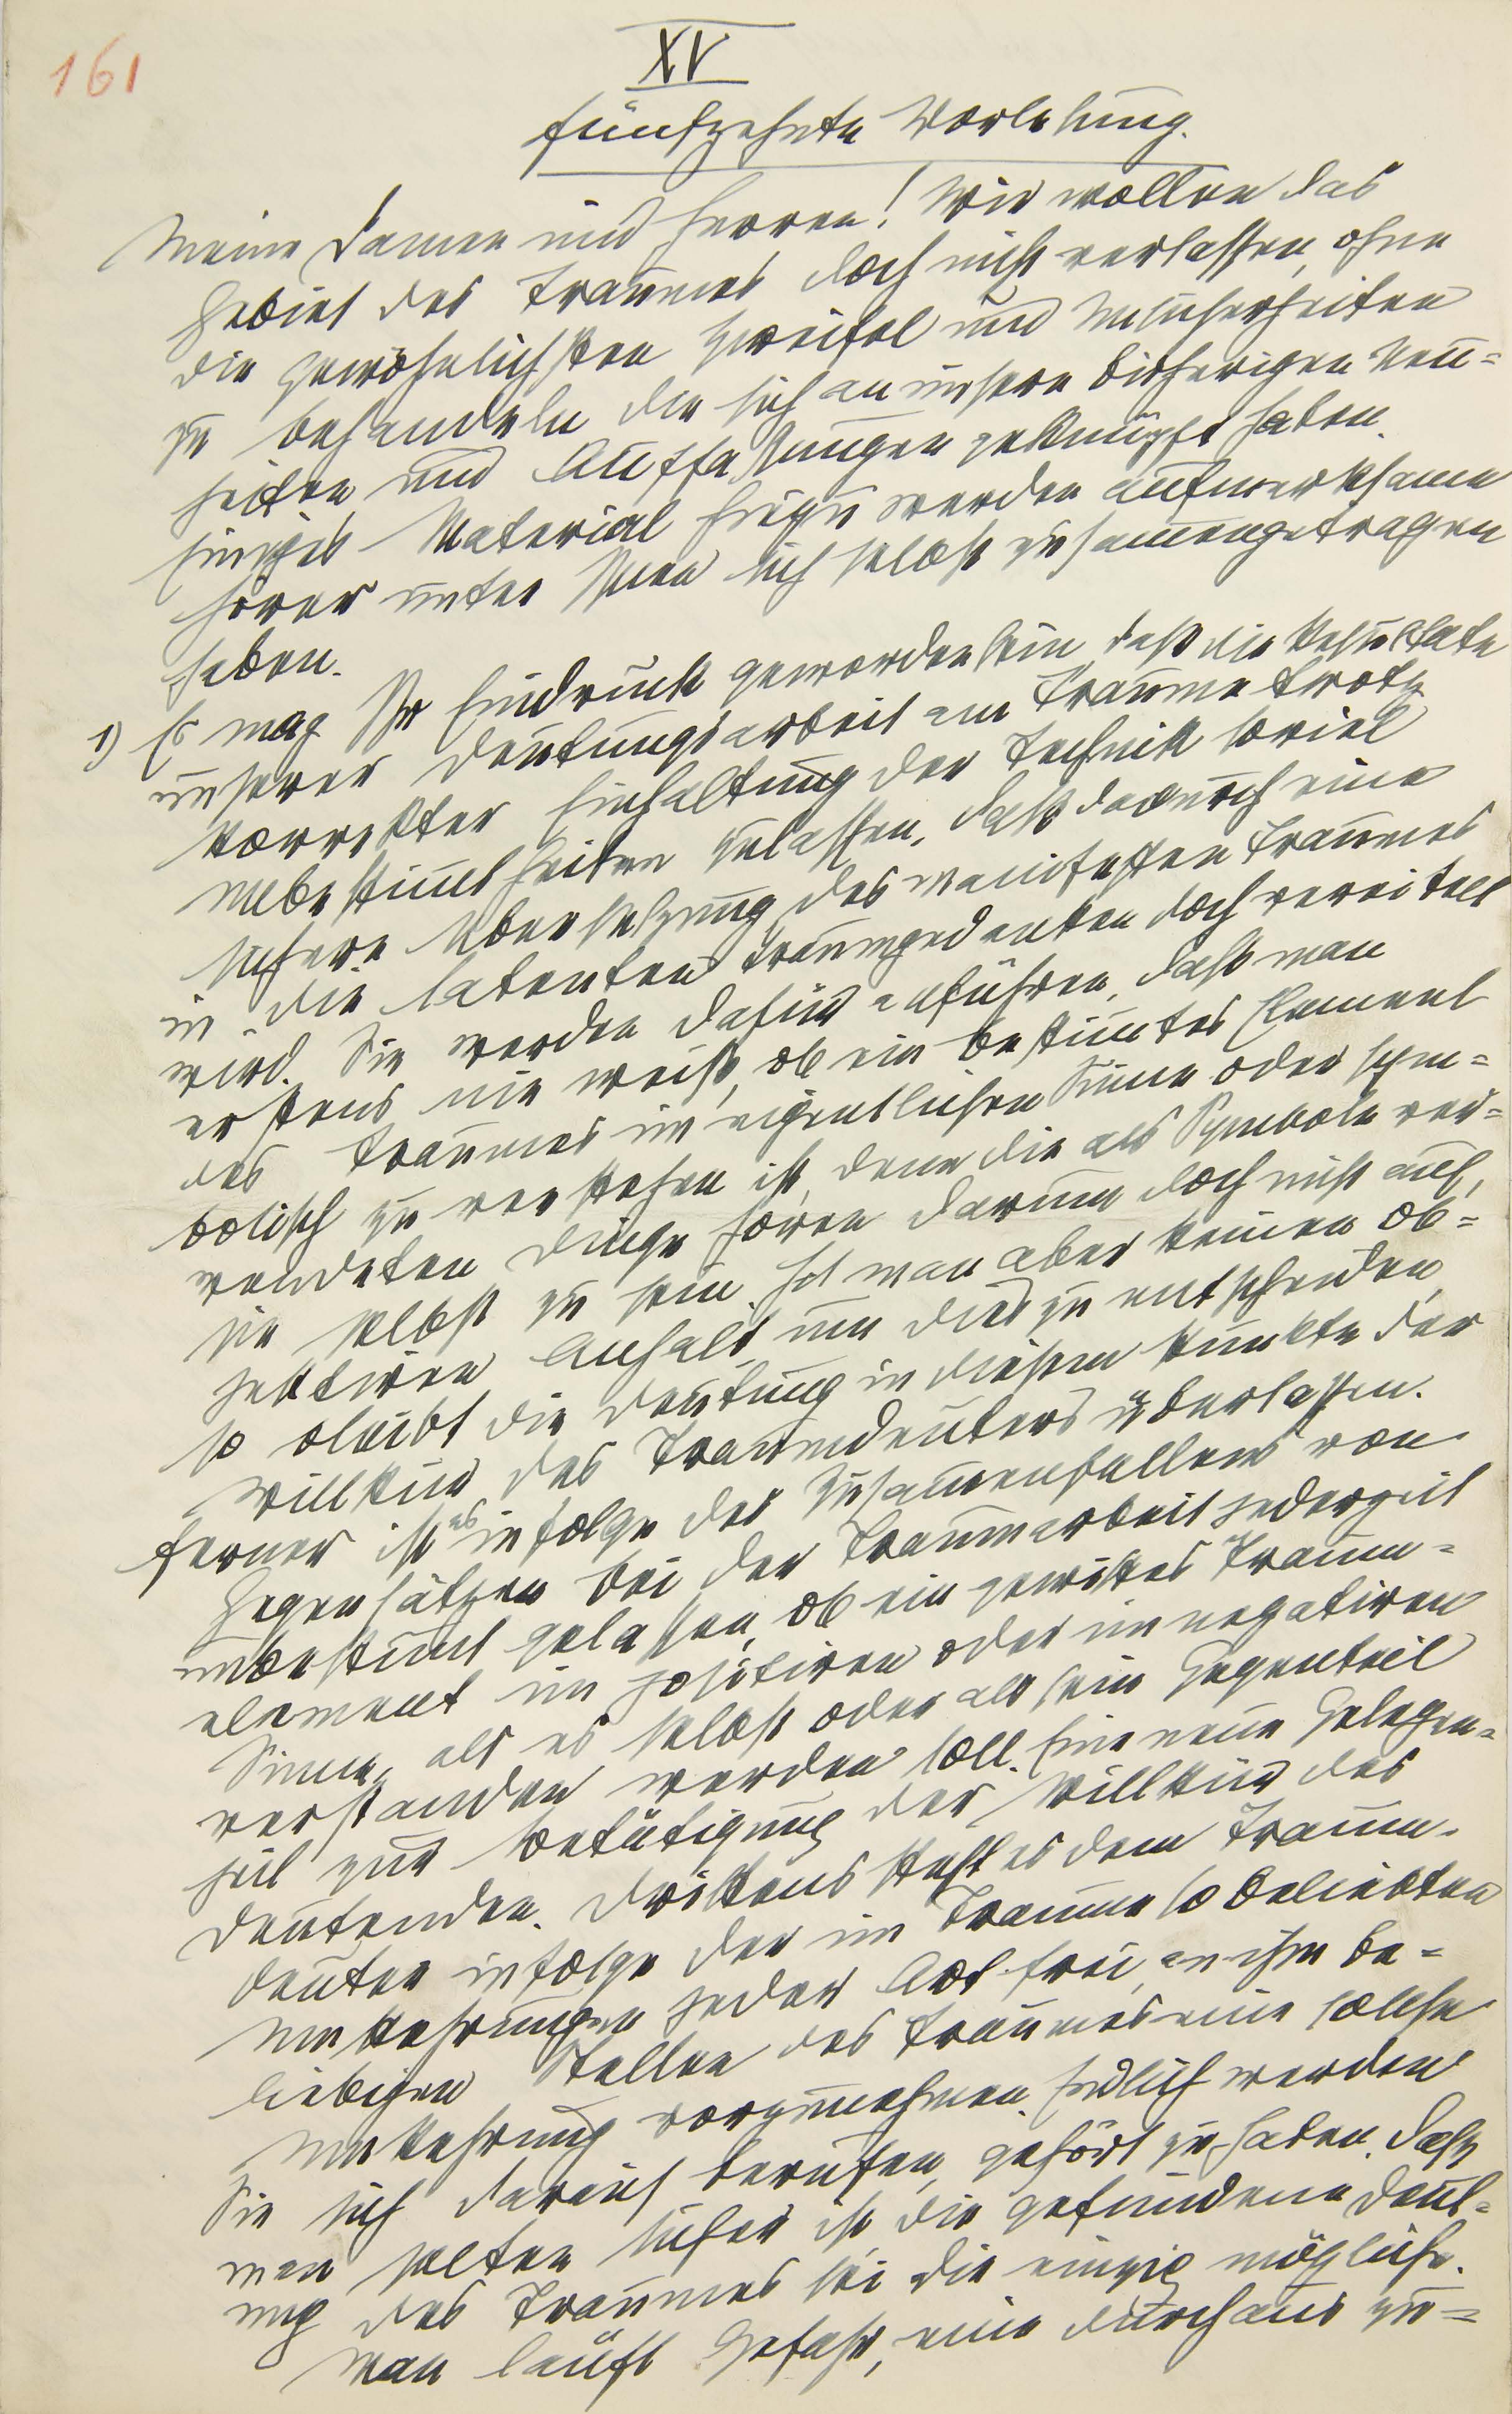 161
XV
Fünfzehnte Vorlesung.
Meine Damen und Herren! Wir wollen das
Gebiet des Traumes doch nicht verlassen, ohne
die gewöhnlichsten Zweifel und Unsicherheiten
zu behandeln die sich an unsere bisherigen Neu=
heiten und Auffassungen geknüpft haben.
Einiges Material hiezu werden aufmerksame
Hörer unter Ihnen sich selbst zusam̄engetragen
haben.
1) Es mag Ihr Eindruck geworden sein daß die Resultate
unserer Deutungsarbeit am Traume trotz
korrekter Einhaltung der Technik soviel
Unbestim̄theiten zulassen, daß dadurch eine
sichere Übersetzung des manifesten Traumes
in die latenten Traumgedanken doch vereitelt
wird. Sie werden dafür anführen, daß man
erstens nie weiß, ob ein bestim̄tes Element
des Traumes im eigentlichen Sinne oder sym=
bolisch zu verstehen ist, denn die als Symbole ver=
wendeten Dinge hören darum doch nicht auf,
sie selbst zu sein. Hat man aber keinen ob=
jektiven Anhalt, um dies zu entscheiden,
so bleibt die Deutung in diesem Punkte der
Willkür des Traumdeuters überlassen.
Ferner ist es infolge des Zusam̄enfallens von
Gegensätzen bei der Traumarbeit jederzeit
unbestim̄t gelassen, ob ein gewisses Traum=
element im positiven oder im negativen
Sinne, als es selbst oder als sein Gegenteil
verstanden werden soll. Eine neue Gelegen=
heit zur Betätigung der Willkür des
Deutenden. Drittens steht es dem Traum=
deuter infolge der im Traume so beliebten
Umkehrungen jeder Art frei, an ihm be=
liebigen Stellen des Traumes eine solche
Umkehrung vorzunehmen. Endlich werden
Sie sich darauf berufen, gehört zu haben, daß
man selten sicher ist, die gefundene Deut=
ung des Traumes sei die einzig mögliche.
Man läuft Gefahr, eine durchaus zu=